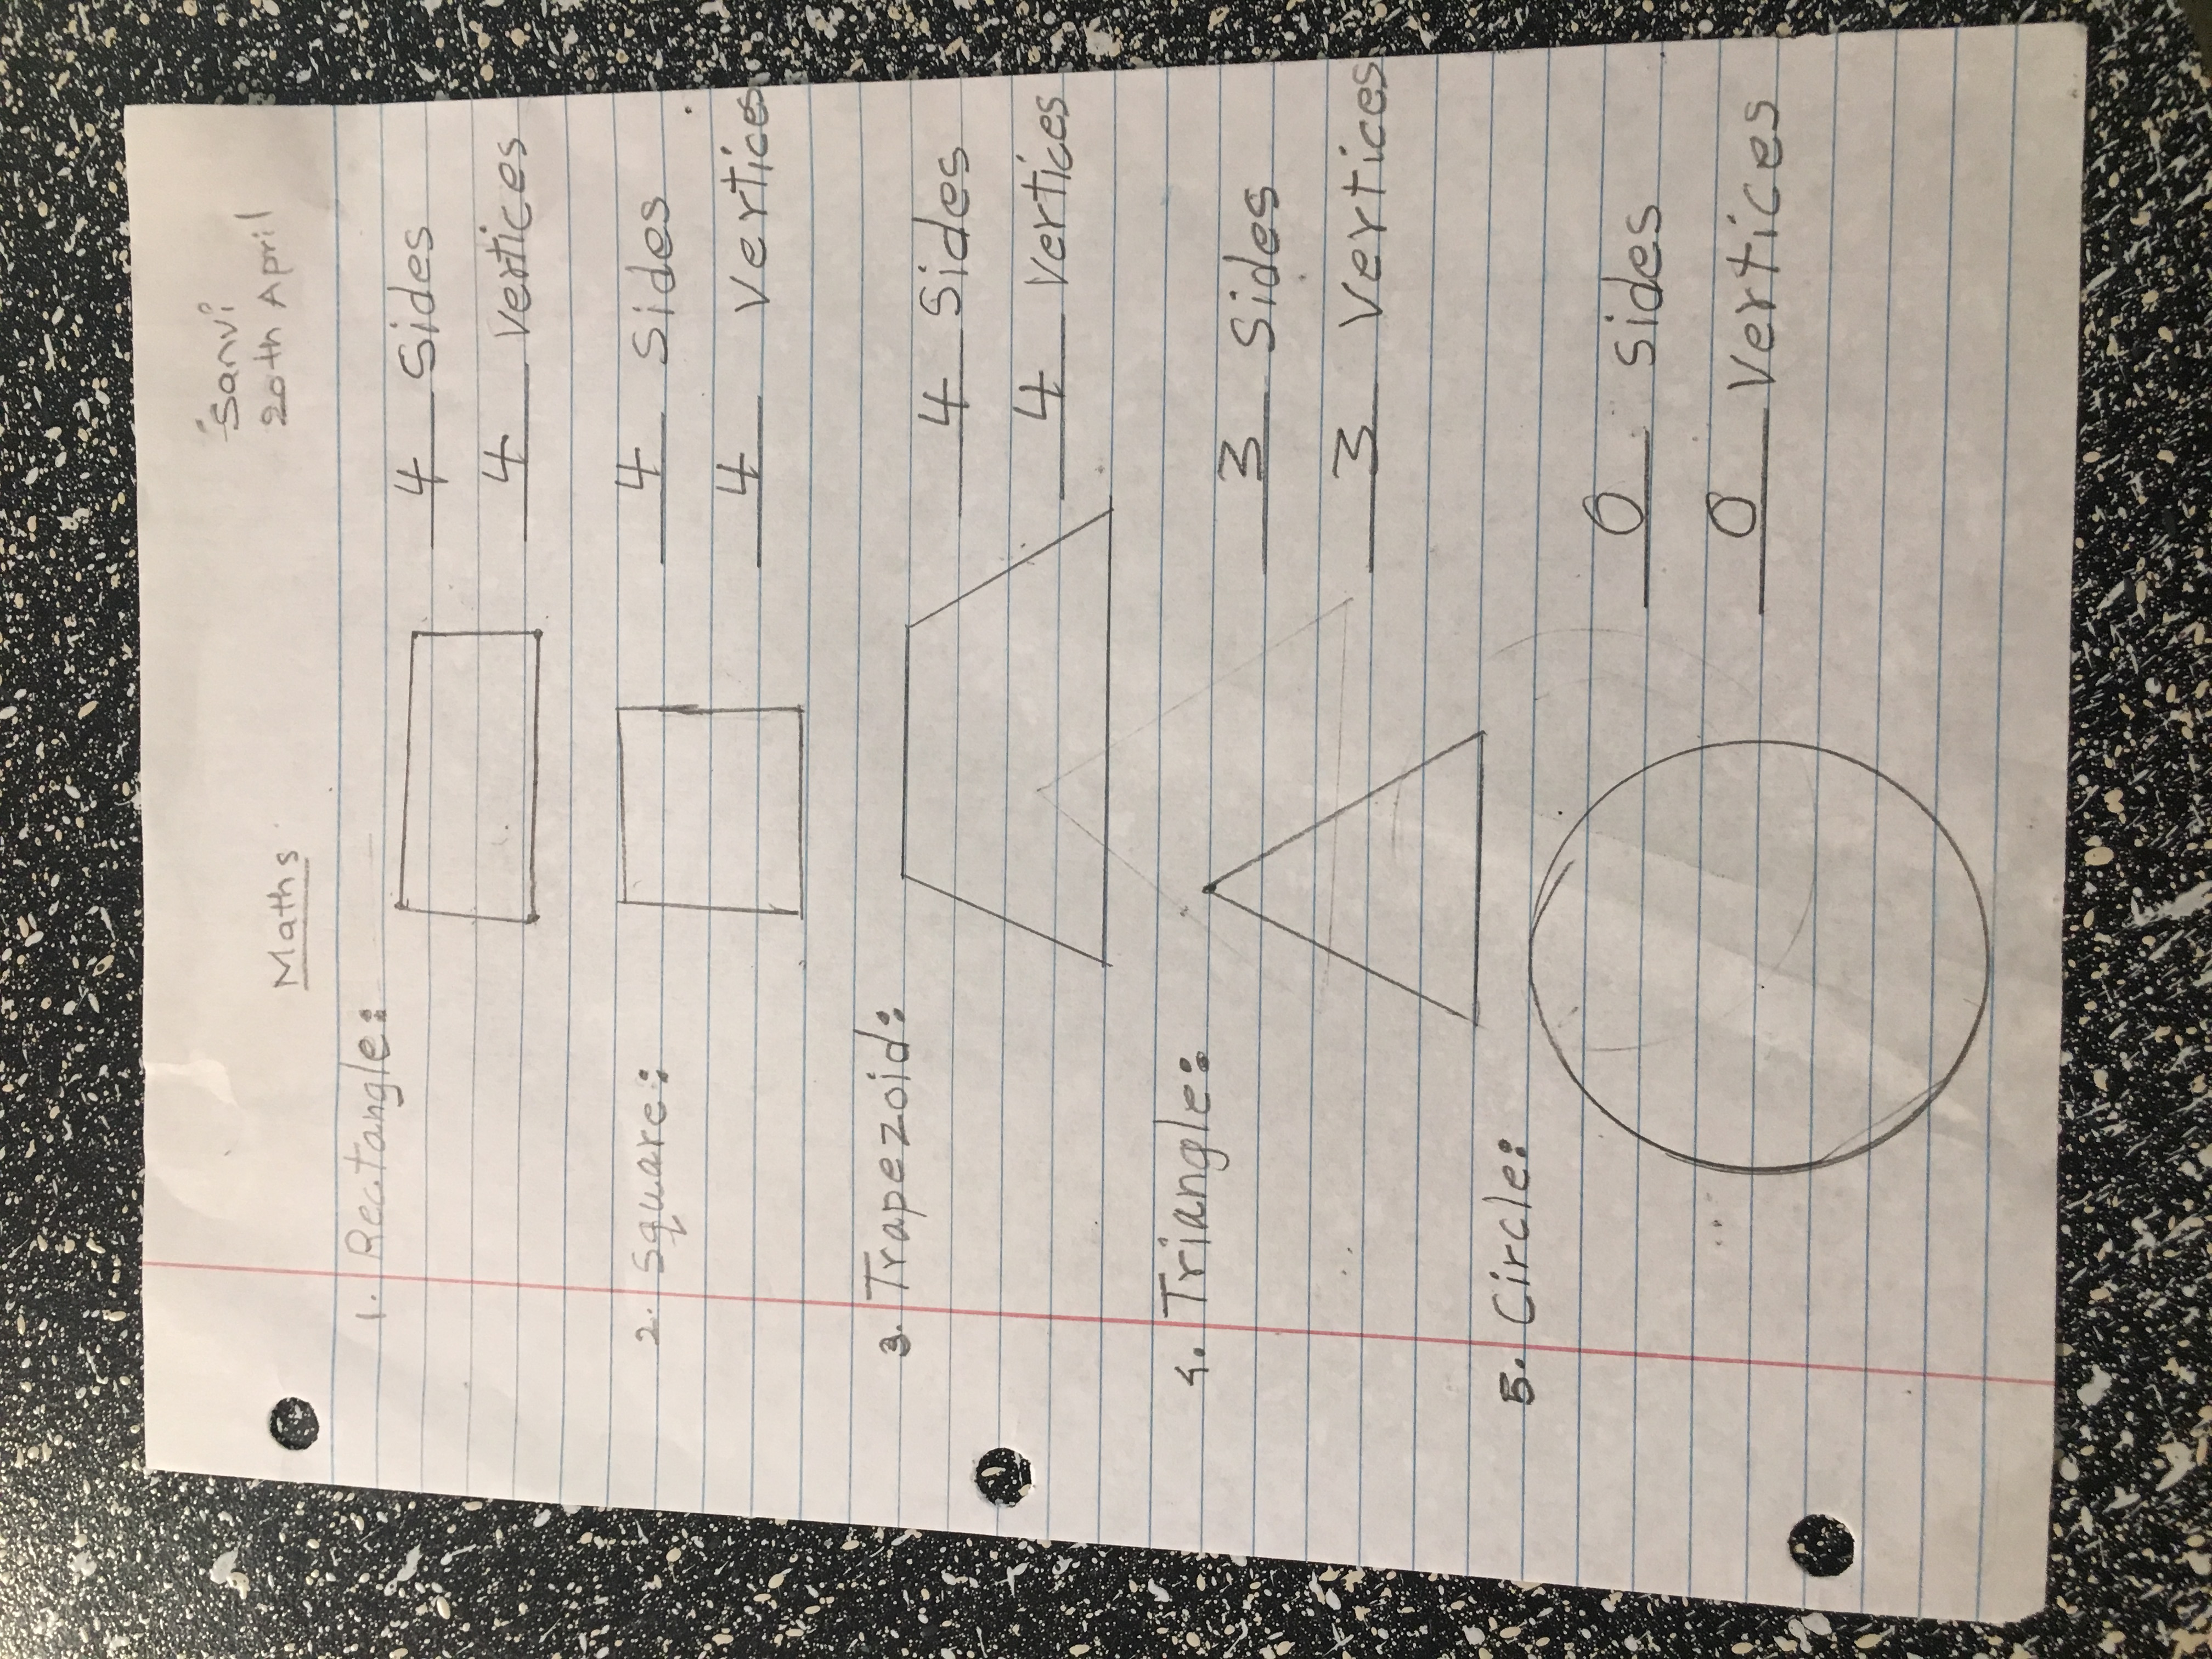 Sanvi
20th April
Maths
1. Rectangle:
4 Sides
4 Vertices
2. Square:
4 Sides
4 Vertices
3. Trapezoid:
4 Sides
4 Vertices
4. Triangle:
3 Sides
3 Vertices
5. Circle:
0 Sides
0 Vertices